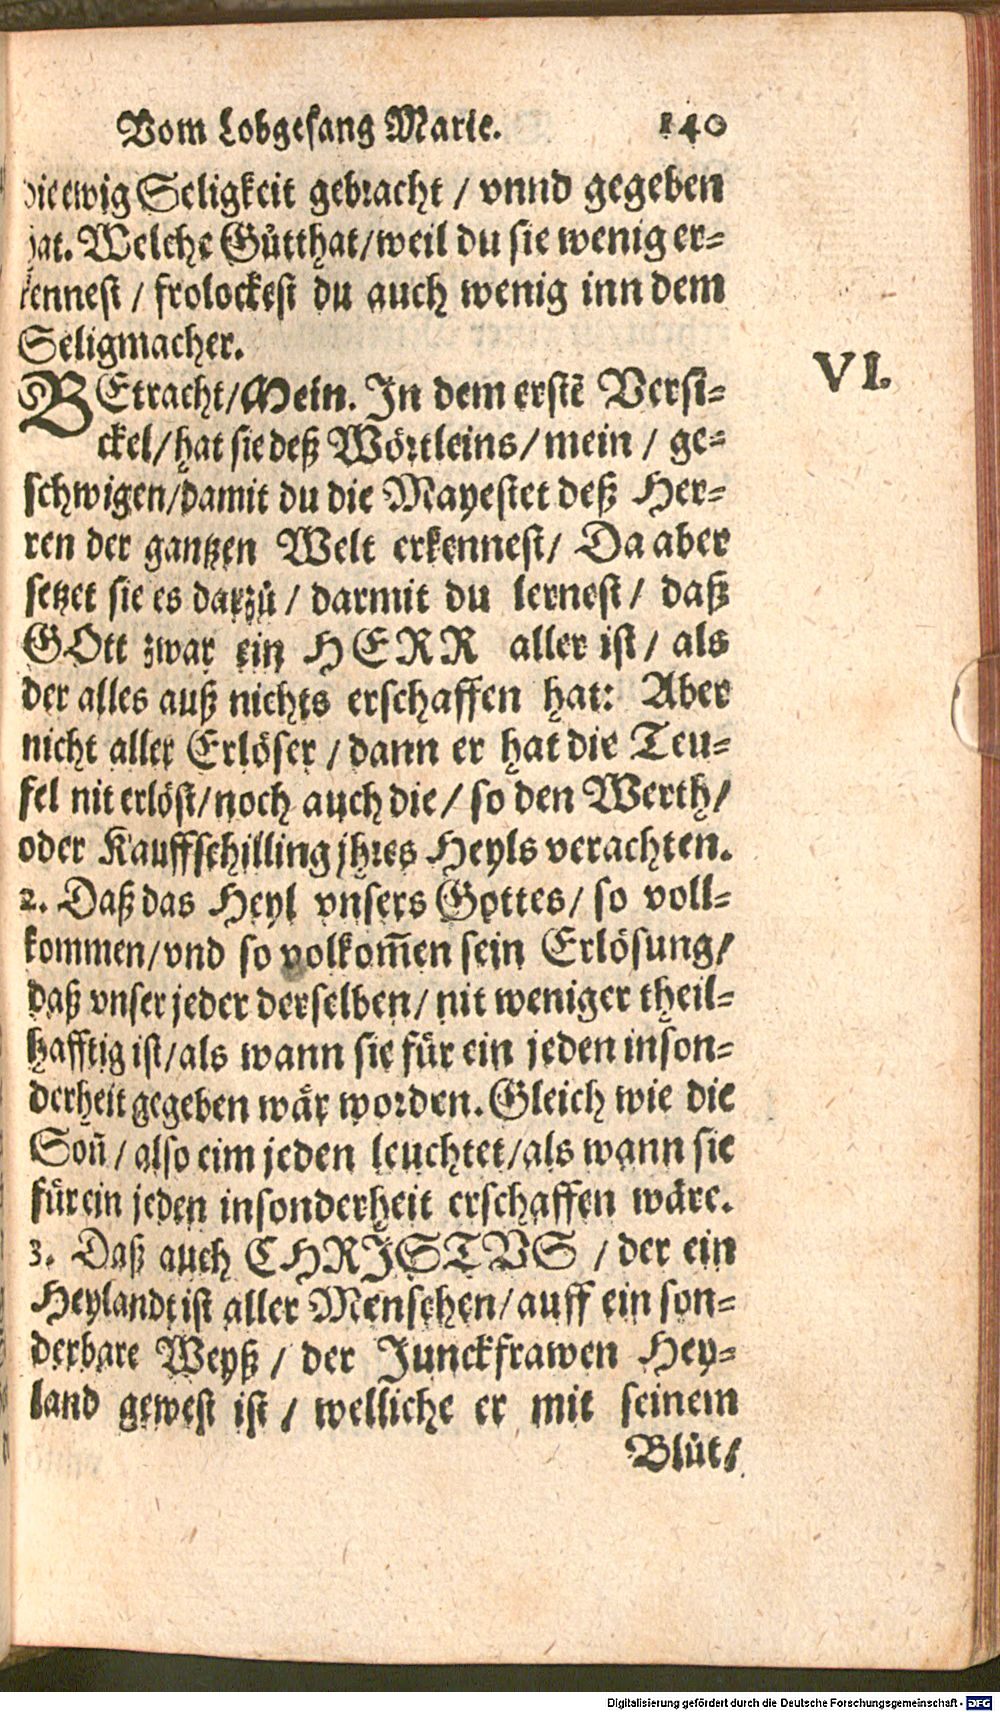 Vom Lobgesang Marie. 140
die ewig Seligkeit gebracht / vnnd gegeben
hat. Welche Gůtthat / weil du sie wenig er-
kennest / frolockest du auch wenig inn dem
Seligmacher.
VI.
BEtracht / Mein. In dem erstẽ Versi-
ckel / hat sie deß Wörtleins / mein / ge-
schwigen / damit du die Mayestet deß Her-
ren der gantzen Welt erkennest / Da aber
setzet sie es darzů / darmit du lernest / daß
GOtt zwar ein HERR aller ist / als
der alles auß nichts erschaffen hat: Aber
nicht aller Erlöser / dann er hat die Teu-
fel nit erlöst / noch auch die / so den Werth /
oder Kauffschilling jhres Heyls verachten.
2. Daß das Heyl vnsers Gottes / so voll-
kommen / vnd so volkom̃en sein Erlösung /
daß vnser jeder derselben / nit weniger theil-
hafftig ist / als wann sie für ein jeden inson-
derheit gegeben wär worden. Gleich wie die
Soñ / also eim jeden leuchtet / als wann sie
für ein jeden insonderheit erschaffen wäre.
3. Daß auch CHRISTVS / der ein
Heylandt ist aller Menschen / auff ein son-
derbare Weyß / der Junckfrawen Hey-
land gewest ist / welliche er mit seinem
Blůt /
Digitalisierung gefördert durch die Deutsche Forschungsgemeinschaft - DFG